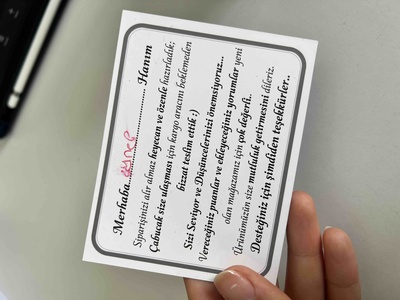 Merhaba.................................. Hanım
Siparişinizi alır almaz heyecan ve özenle hazırladık;
Çabucak size ulaşması için kargo aracını beklemeden
bizzat teslim ettik :)
Sizi Seviyor ve Düşüncelerinizi önemsiyoruz...
Vereceğiniz puanlar ve ekleyeceğiniz yorumlar yeni
olan mağazamız için çok değerli..
Ürünümüzün size mutluluk getirmesini dileriz.
Desteğiniz için şimdiden teşekkürler..